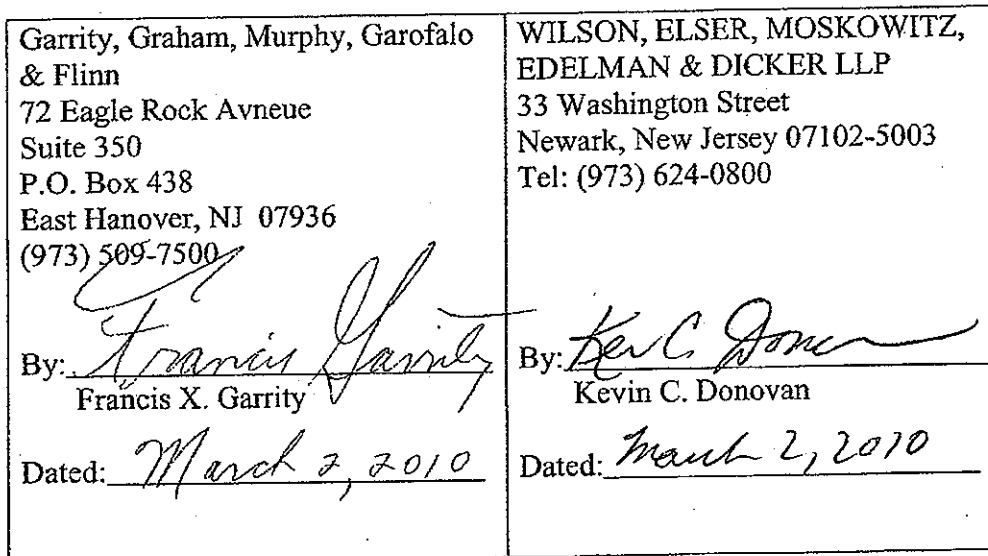 Garrity, Graham, Murphy, Garofalo
& Flinn
72 Eagle Rock Avneue
Suite 350
P.O. Box 438
East Hanover, NJ 07936
(973) 509-7500
By: Francis Garrity
Francis X. Garrity
Dated: March 2, 2010
WILSON, ELSER, MOSKOWITZ,
EDELMAN & DICKER LLP
33 Washington Street
Newark, New Jersey 07102-5003
Tel: (973) 624-0800
By: Kev C. Donovan
Kevin C. Donovan
Dated: March 2, 2010